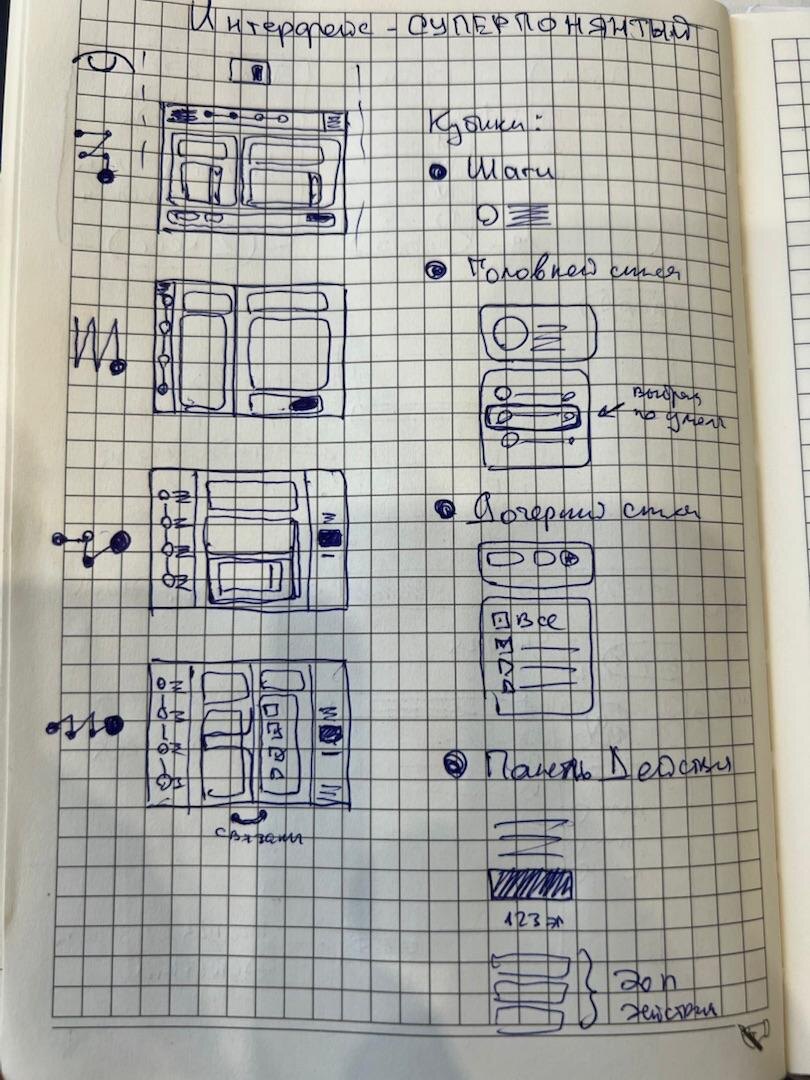 Интерфейс - СУПЕРПОНЯТНЫЙ
Кубики:
Шаги
Головней стек
выбран
по умол
Дочерний стек
Все
Панель Действи
123 эл
Доп
действия
связаны